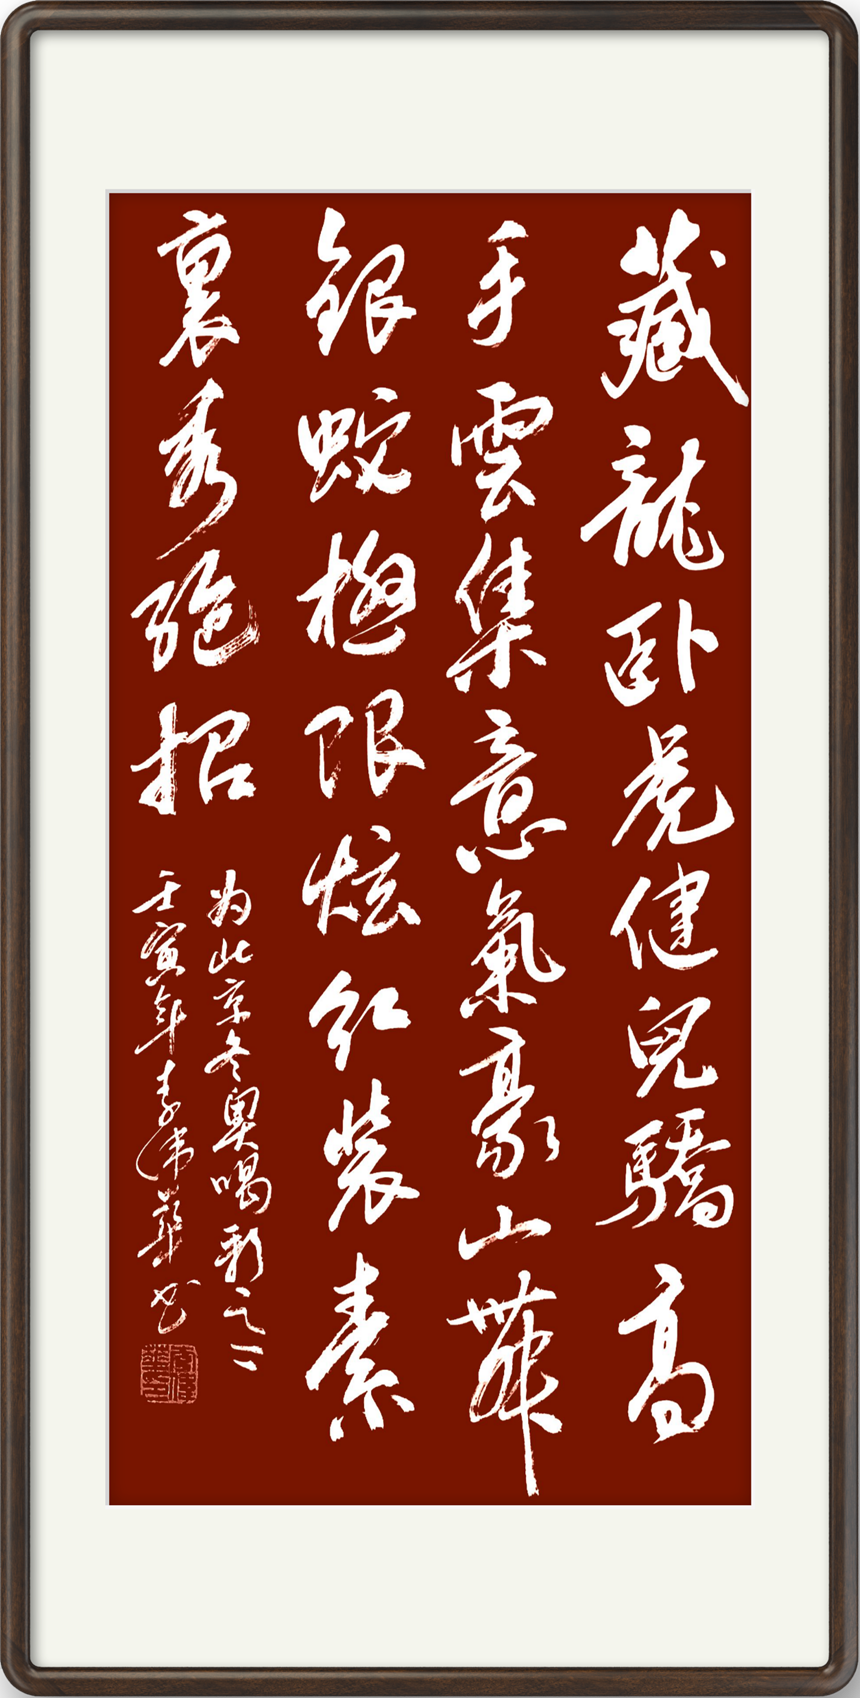 藏龍卧虎健兒驕高
手雲集意氣豪山舞
銀蛟極限炫紅裝素
裹秀跑招
为北京冬奥喝彩之二
壬寅年李伟華书